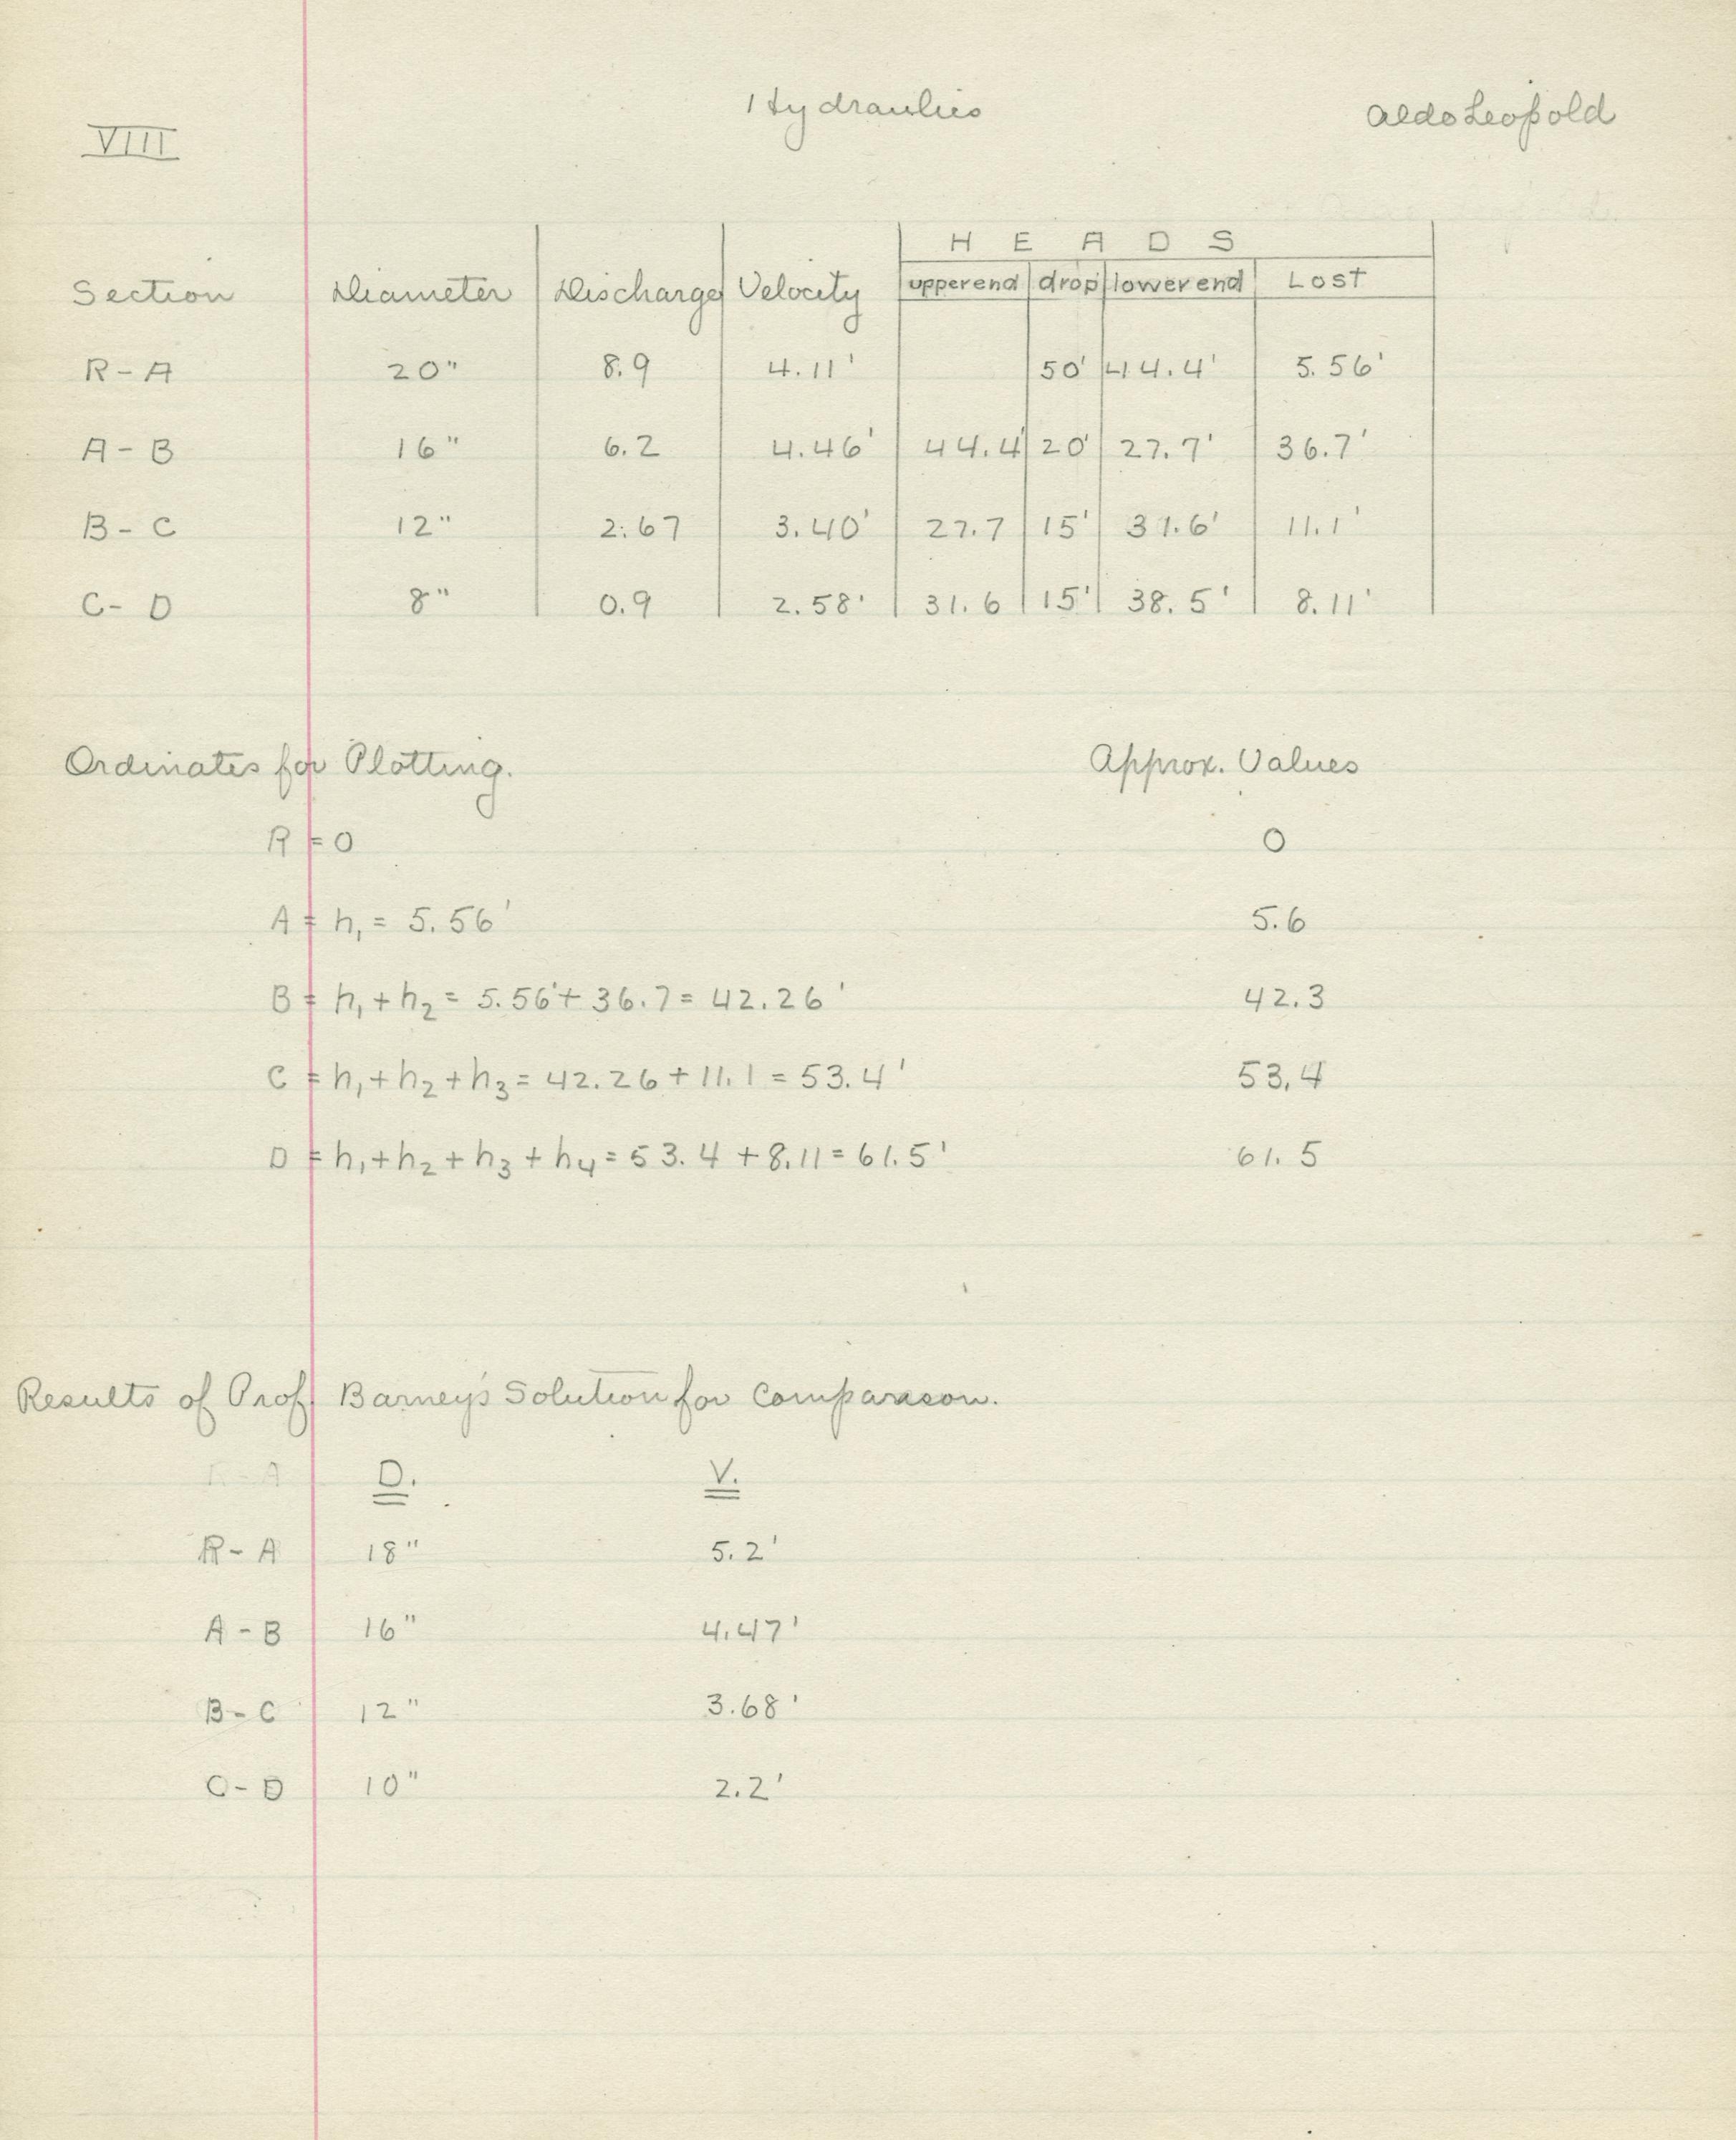 VIII
Hydraulics
Aldo Leopold
H E A D S
Section Diameter Discharge Velocity upper end drop lower end Lost
R - A 20" 8.9 4.11' 50' 44.4' 5.56'
A - B 16" 6.2 4.46' 44.4 20' 27.7' 36.7'
B - C 12" 2.67 3.40' 27.7 15' 31.6' 11.1'
C - D 8" 0.9 2.58' 31.6 15' 38.5' 8.11'
Ordinates for Plotting. Approx. Values
R = 0 0
A = h₁ = 5.56' 5.6
B = h₁ + h₂ = 5.56 + 36.7 = 42.26' 42.3
C = h₁ + h₂ + h₃ = 42.26 + 11.1 = 53.4' 53.4
D = h₁ + h₂ + h₃ + h₄ = 53.4 + 8.11 = 61.5' 61.5
Results of Prof Barney's Solution for Comparason.
D. V.
R - A 18" 5.2'
A - B 16" 4.47'
B - C 12" 3.68'
C - D 10" 2.2'